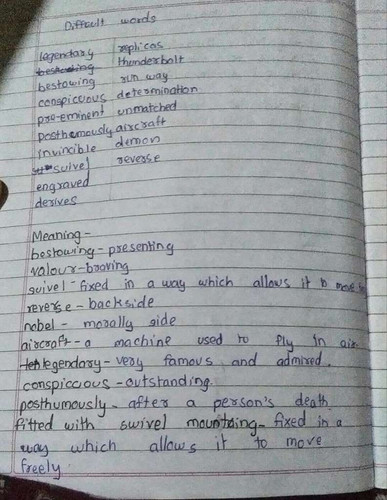 Difficult words
legendary replicas
bestowing thunderbolt
bestowing run way
conspicuous determination
pre-eminent unmatched
posthumously aircraft
invincible demon
suivel reverse
engraved
derives
Meaning-
bestowing-presenting
valour-braving
suivel-fixed in a way which allows it to move
reverse-backside
nobel- morally side
aircraft-a machine used to fly in air.
legendary-very famous and admired.
conspiccous-outstanding.
posthumously- after a person's death
fitted with swivel mounting-fixed in a
way which allows it to move
freely.